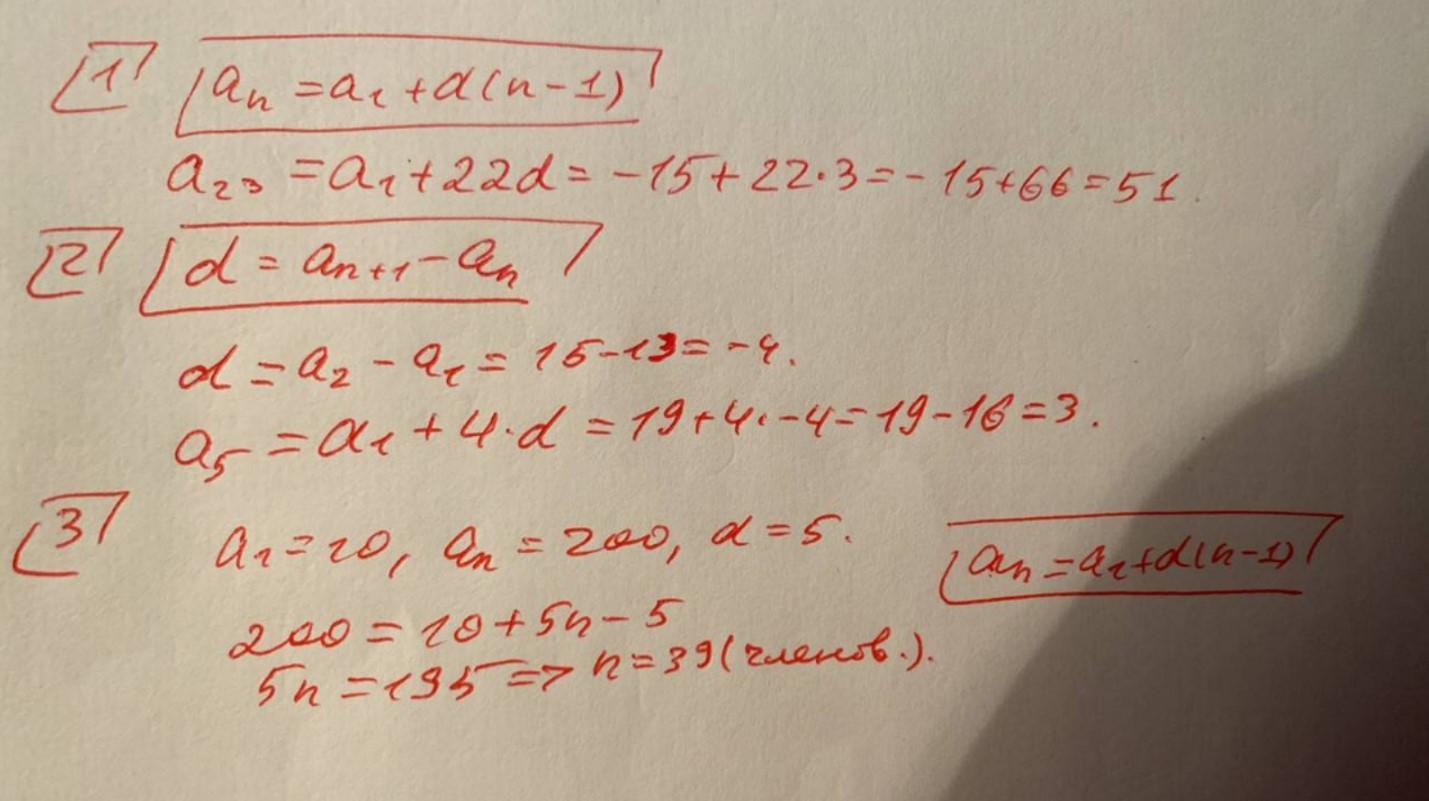 1 aₙ = a₁ + d(n-1)
a₂₃ = a₁ + 22d = -15 + 22·3 = -15 + 66 = 51.
2 d = aₙ₊₁ - aₙ
d = a₂ - a₁ = 15-13 = -4.
a₅ = a₁ + 4·d = 19 + 4·-4 = 19 - 16 = 3.
3 a₁ = 10, aₙ = 200, d = 5. aₙ = a₁ + d(n-1)
200 = 10 + 5n - 5
5n = 195 => n = 39 (членов.).